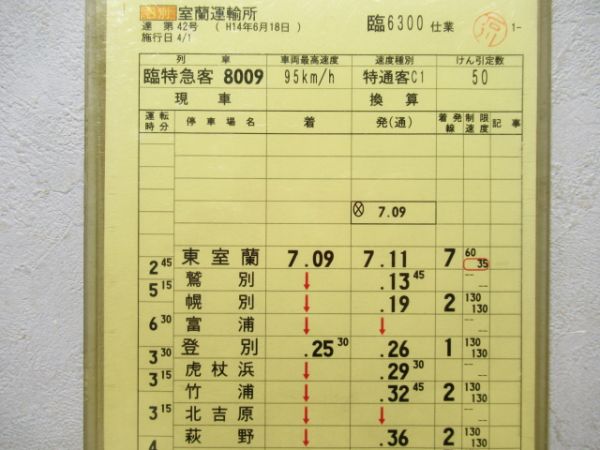 室蘭運輸所
達 第 42号 ( H14年6月18日 )
施行日 4/1
臨6300 仕業
1-
列車 車両最高速度 速度種別 けん引定数
臨特急客 8009 95km/h 特通客C1 50
現車 換算
運転時分 停車場名 着 発(通) 着発線 制限速度 記事
7.09
東室蘭 7.09 7.11 7 60 35
2 45
鷲別 ↓ .13 45
5 15
幌別 ↓ .19 2 130 130
富浦 ↓ ↓
6 30
登別 .25 30 .26 1 130 130
3 30
虎杖浜 ↓ .29 30
3 15
竹浦 ↓ .32 45 2 130 130
北吉原 ↓ ↓
3 15
萩野 ↓ .36 2 130 130
4